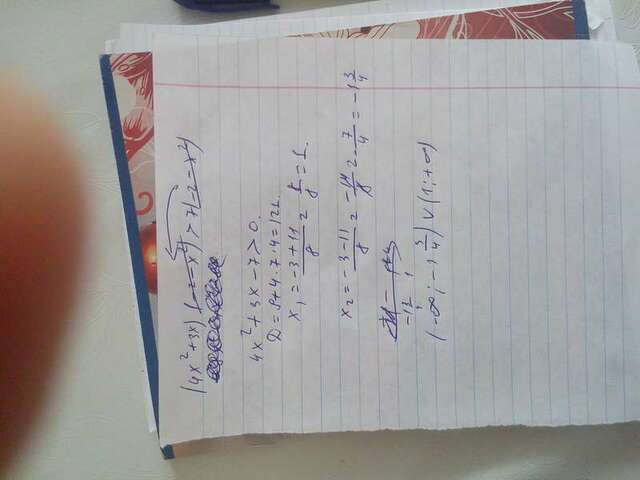 (4x²+3x)(-2-x²)>7(-2-x²)
4x²+3x-7>0.
D=9+4·7·4=121.
x₁=(-3+11)/8=8/8=1.
x₂=(-3-11)/8=-14/8=-7/4=-1 3/4
-1 3/4 1
(-∞;-1 3/4)∪(1;+∞)